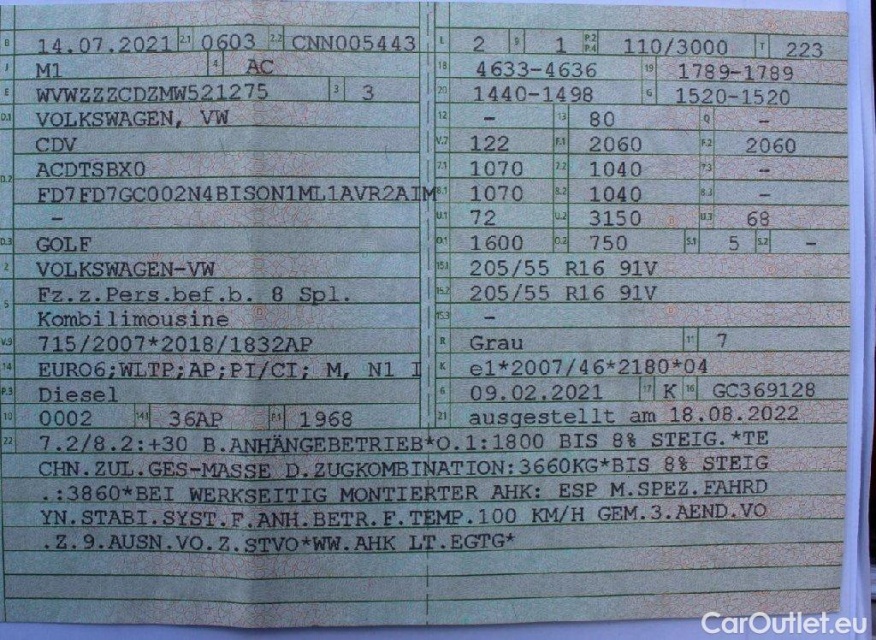 B 14.07.2021 2.1 0603 2.2 CNN005443 L 2 9 1 P.2 P.4 110/3000 T 223
J M1 4 AC 18 4633-4636 19 1789-1789
E WVWZZZCDZMW521275 3 3 20 1440-1498 G 1520-1520
D.1 VOLKSWAGEN, VW 12 - 13 80 Q -
CDV V.7 122 F.1 2060 F.2 2060
D.2 ACDTSBX0 7.1 1070 7.2 1040 7.3 -
FD7FD7GC002N4BISON1ML1AVR2AIM 8.1 1070 8.2 1040 8.3 -
- U.1 72 U.2 3150 U.3 68
D.3 GOLF O.1 1600 O.2 750 S.1 5 S.2 -
2 VOLKSWAGEN-VW 15.1 205/55 R16 91V
5 Fz.z.Pers.bef.b. 8 Spl. 15.2 205/55 R16 91V
Kombilimousine 15.3 -
V.9 715/2007*2018/1832AP R Grau 11 7
14 EURO6;WLTP;AP;PI/CI; M, N1 I K e1*2007/46*2180*04
P.3 Diesel 6 09.02.2021 17 K 16 GC369128
10 0002 14.1 36AP P.1 1968 21 ausgestellt am 18.08.2022
22 7.2/8.2:+30 B.ANHÄNGEBETRIEB*O.1:1800 BIS 8% STEIG.*TE
CHN.ZUL.GES-MASSE D.ZUGKOMBINATION:3660KG*BIS 8% STEIG
.:3860*BEI WERKSEITIG MONTIERTER AHK: ESP M.SPEZ.FAHRD
YN.STABI.SYST.F.ANH.BETR.F.TEMP.100 KM/H GEM.3.AEND.VO
.Z.9.AUSN.VO.Z.STVO*WW.AHK LT.EGTG*
CarOutlet.eu